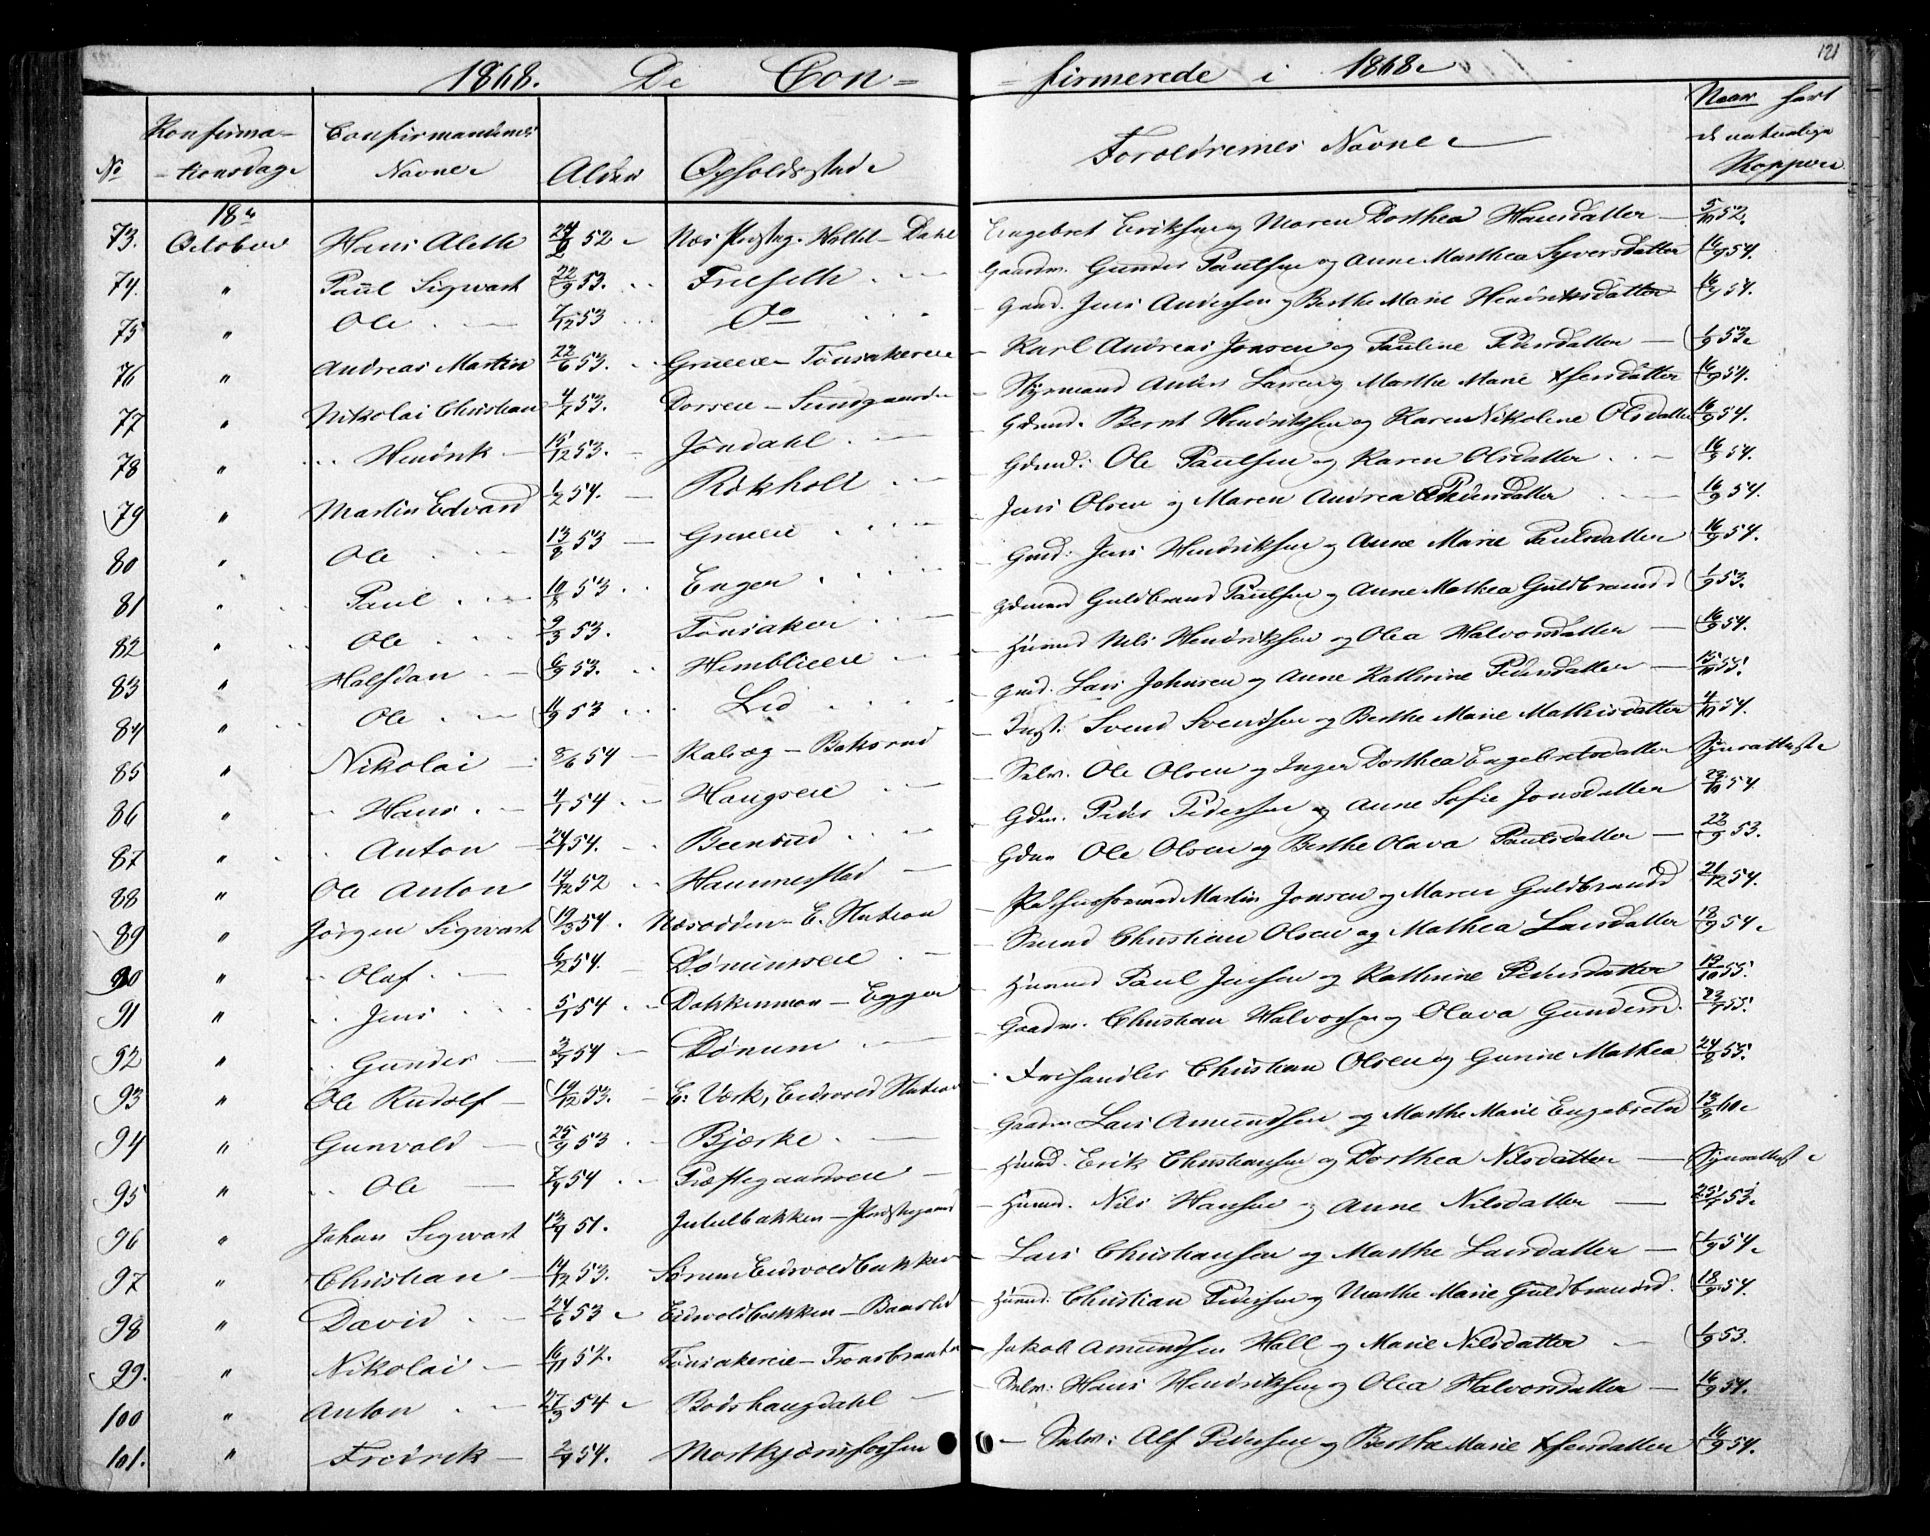 1868. De Con- -firmerede i 1868 121
No Konfirma- -tionsdage Confirmandernes Navne Alder Opholdsstede Foreldrernes Navne Naar havt de naturlige Kopper
73. 18de October Hans Aleth 52 Dahl Engebret Eriksen og Maren Dorthea Hansdatter 5/10 52.
74. " Paul Sigwart 22/9 53. Frilseth Gaardm. Gunder Paulsen og Anne Marthea Syversdatter 16/9 54.
75 " Ole 7/12 53 Do Gaard. Jens Andersen og Berthe Marie Hendriksdatter 16/9 54.
76 " Andreas Martin 22/6 53. Tønsakereie Karl Andreas Jonsen og Pauline Pedersdatter 1/9 53
77 " Nikolai Christian 4/7 53. Styrmand Anders Larsen og Marthe Marie 16/9 54.
78 " Hendrik 15/12 53. Jøndahl Gdmd. Bernt Hendriksen og Karen Nikoline Olsdatter 16/9 54.
79 " Martin Edvard 1/2 54. Rökholt Gdmd: Ole Paulsen og Karen Olsdatter 16/9 54.
80 " Ole 13/8 53 Jens Olsen og Maren Andrea Pedersdatter 16/9 54.
81 " Paul 10/8 53 Enger Gmd: Jens Hendriksen og Anne Marie Paulsdatter 16/9 54.
82 " Ole 9/3 53. Tønsaker Gdmand Guldbrand Paulsen og Anne Mathea Guldbrandsd 1/9 53.
83 " Halfdan 6/9 53. Hemblieeie Huusmd Nils Hendriksen og Olea Halvorsdatter 16/9 54.
84 " Ole 11/9 53 Lid Gmd. Lars Johnsen og Anne Kathrine Pedersdatter 15/10 55.
85 " Nikolai 8/6 54 Kalvæg - Inst: Svend Svendsen og Berthe Marie Mathisdatter 4/10 54.
86 " Hans 4/1 54 Haugseie Selv. Ole Olsen og Inger Dorthea Engebretsdatter Synsattest
87 " Anton 24/1 54. Beensud Gdm. Peder Pedersen og Anne Sofie Jonsdatter 23/10 54
88 " Ole Anton 14/12 52 Hammerstad Gdm Ole Olsen og Berthe Olava Paulsdatter 22/9 53.
89 " Jørgen Sigwart 19/3 54. Næsodden - E. Station Martin Jonsen og Maren Guldbrandsd 21/12 54.
90 " Olaf 6/2 54. Smed Christian Olsen og Mathea Larsdatter 18/9 54
91 " Jens 5/1 54 Dokkenmoen - Egger Huusmd Paul Jensen og Kathrine Pedersdatter 19/10 55.
92 " Gunder 3/7 54 Dønum Gaardm. Christian Halvorsen og Olava Gundersd. 23/9 55.
93 " Ole Rudolf 19/12 53. E: Værk, Eidsvold Station Frihandler Christian Olsen og Gunine Mathea 24/8 55.
94 " Gunvald 25/9 53 Bjørke Gaardm Lars Amundsen og Marthe Marie Engebretsd 13/3 60
95 " Ole 7/9 54 Præstegaardseie Huusmd. Erik Christiansen og Dorthea Nilsdatter Synsattest
96 " Johan Sigwart 13/9 51. Jululbakken - Præstegaard Huusmd. Nils Hansen og Anne Nilsdatter 25/7 53
97 " Christian 14/12 53. Sørum Eidsvoldbakken Lars Christiansen og Marthe Larsdatter 1/9 54
98 " David 24/6 53 Eidsvoldbakken - Huusmd: Christian Pedersen og Marthe Marie Guldbrandsd. 18/9 54.
99. " Nikolai 16/11 52. Tønsakereie - Jakob Amundsen Hall og Marie Nilsdatter 1/9 53.
100 " Anton 27/3 54 Bödshaugdahl Selv: Hans Hendriksen og Olea Halvorsdatter 16/9 54.
101. " Fredrik 2/9 54. Selv: Alf Pedersen og Berthe Marie 16/9 54.